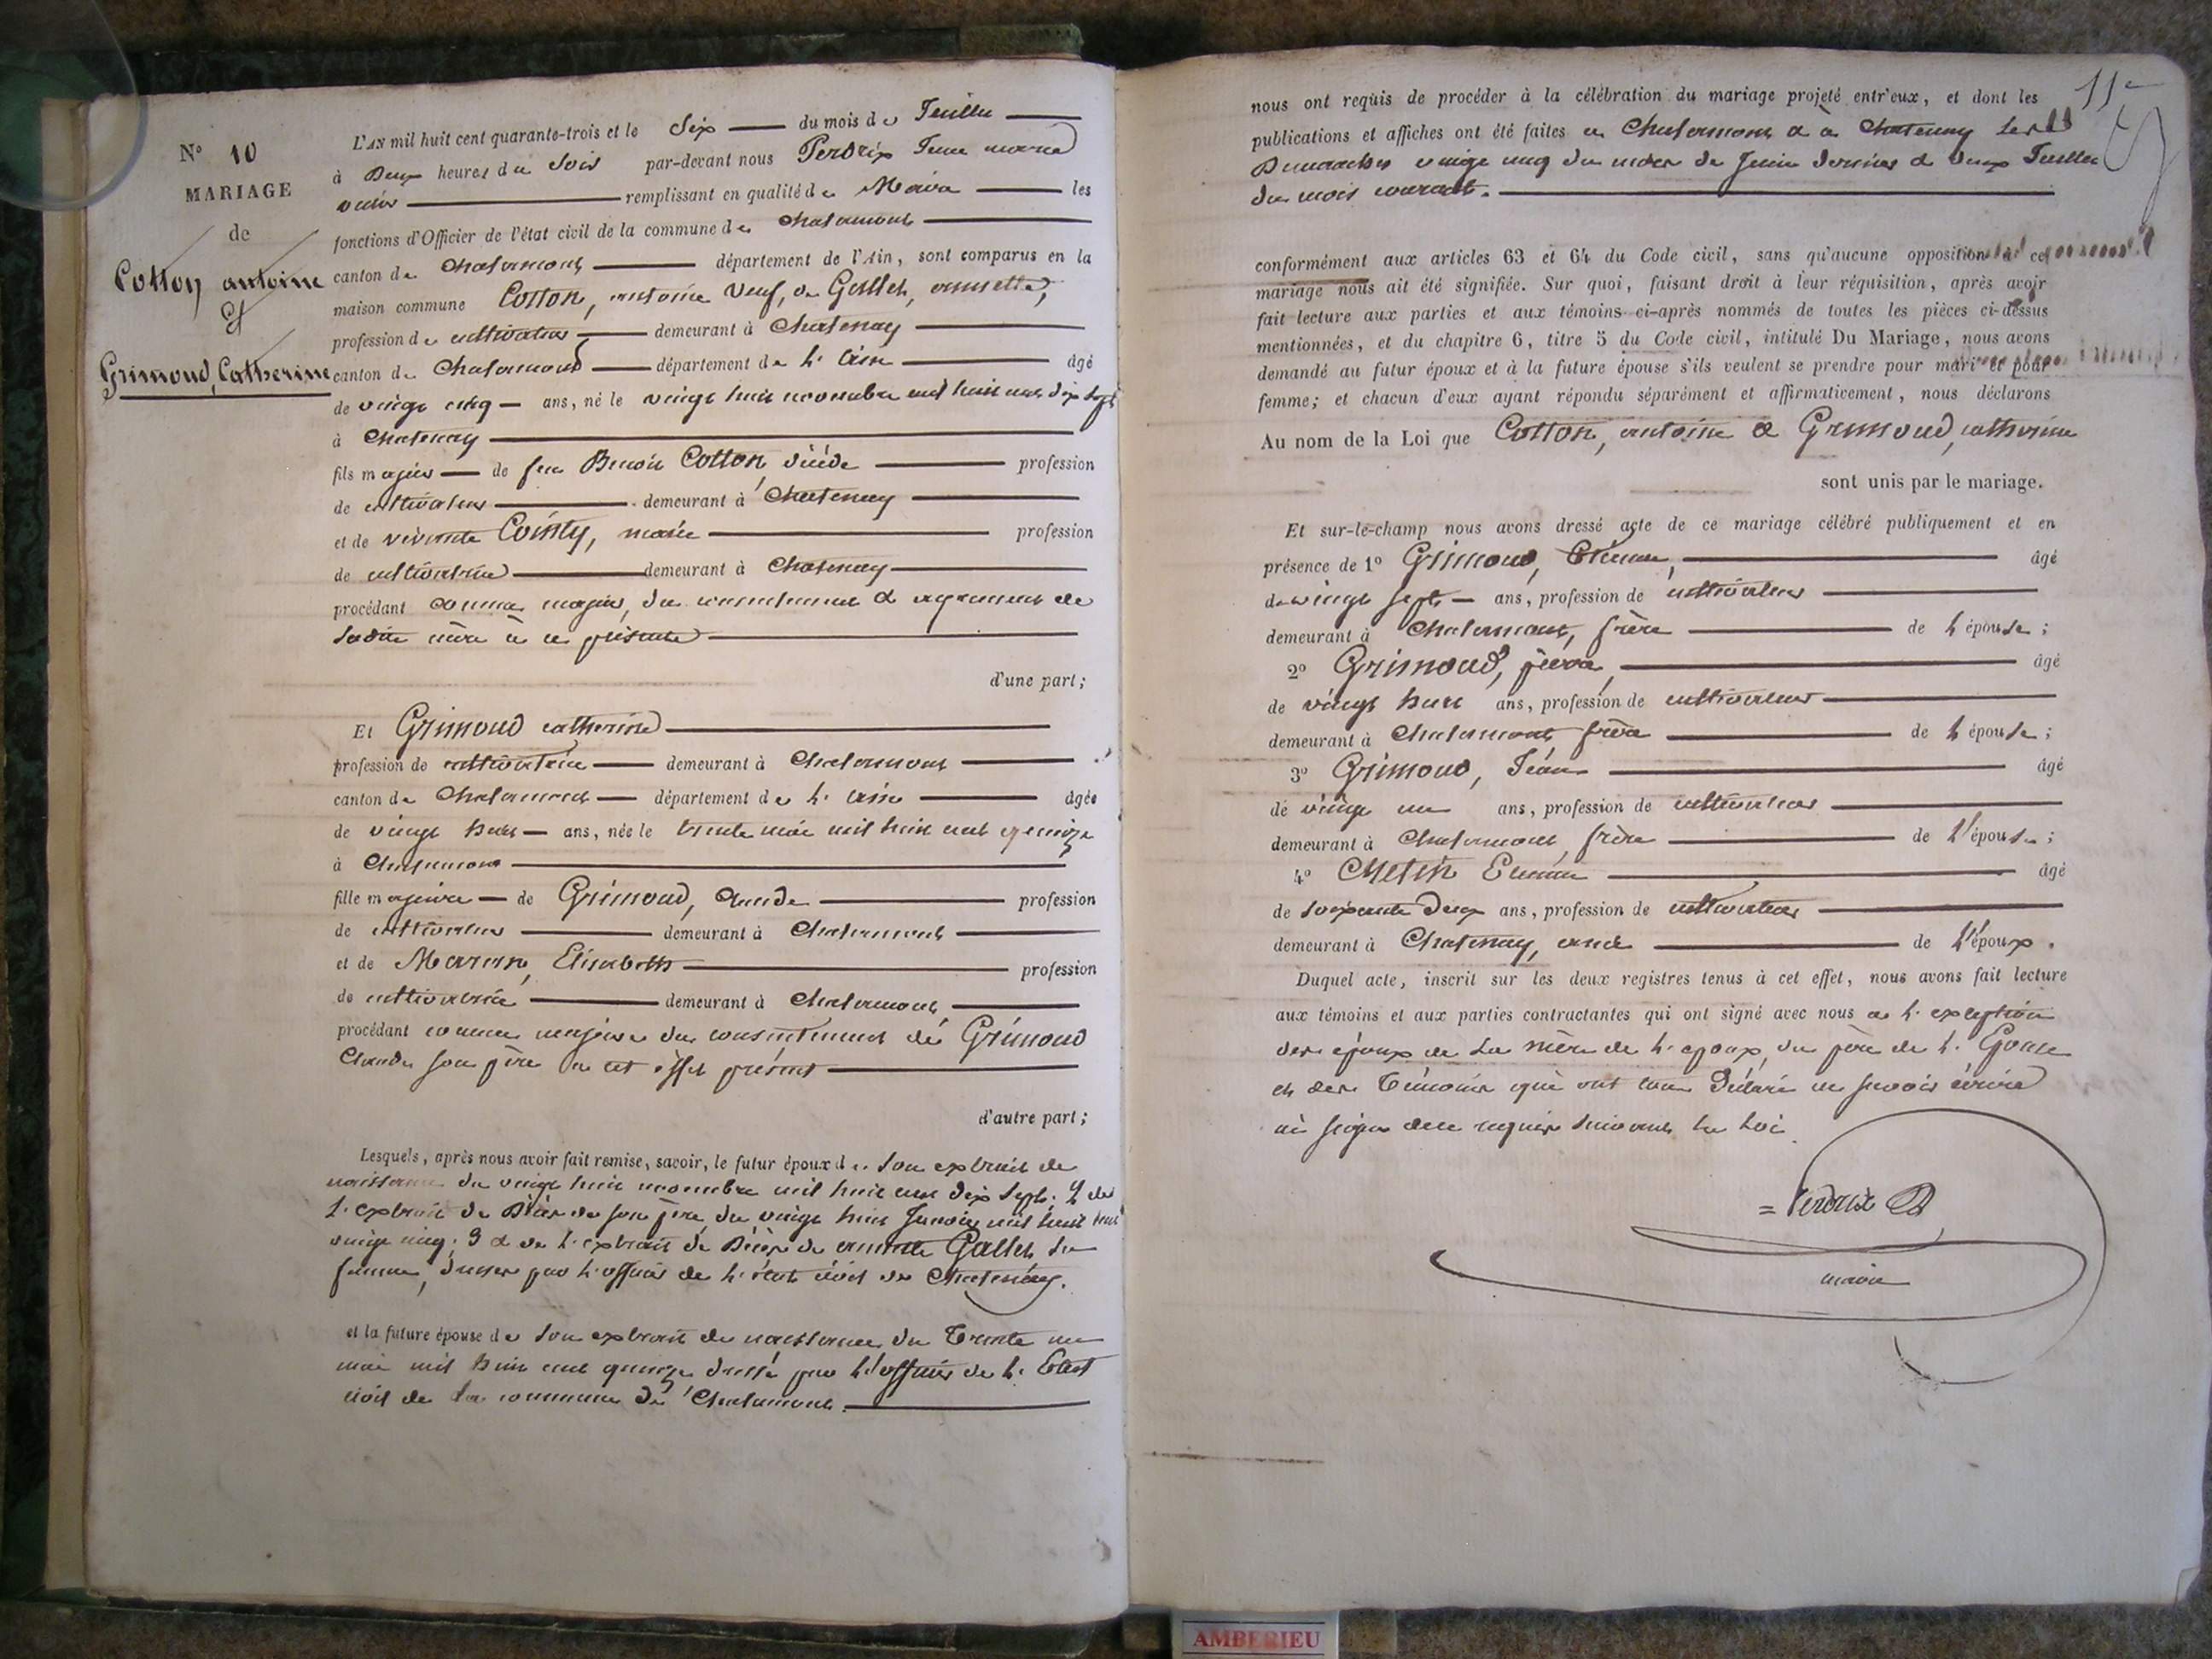 N° 10
MARIAGE
de
Cotton antoine
et
Grimoud, Catherine
L'AN mil huit cent quarante-trois et le Six du mois de Juillet
à Deux heures du Soir par-devant nous Perdrix
remplissant en qualité de Maire les
fonctions d'Officier de l'état civil de la commune de Chalamont
canton de Chalamont département de l'Ain, sont comparus en la
maison commune Cotton, antoine veuf, de Gallet, annette,
profession de cultivateur demeurant à Chatenay
canton de Chalamont département de l'ain âgé
de vingt cinq ans, né le vingt huit novembre mil huit cent dix sept
à Chatenay
fils majeur de feu Benoit Cotton, décédé profession
de cultivateur demeurant à Chatenay
et de vivante Cointy, marie profession
de cultivatrice demeurant à Chatenay
procédant comme majeur, du consentement & agrément de
sadite mère à ce présente
d'une part;
Et Grimoud catherine
profession de cultivatrice demeurant à Chalamont
canton de Chalamont département de l'ain âgée
de vingt huit ans, née le trente mai mil huit cent quinze
à Chalamont
fille majeure de Grimoud, Claude profession
de cultivateur demeurant à Chalamont
et de Elisabeth profession
de cultivatrice demeurant à Chalamont,
procédant comme majeure du consentement de Grimoud
Claude son père à cet effet présent
d'autre part;
Lesquels, après nous avoir fait remise, savoir, le futur époux de son extrait de
naissance du vingt huit novembre mil huit cent dix sept; 2 de
l'extrait de Décès de son père, du vingt huit Janvier mil huit cent
vingt cinq; 3 & de l'extrait de Décès de annette Gallet sa
femme, dressés par l'officier de l'état civil de Chatenay.
et la future épouse de son extrait de naissance du Trente
mai mil huit cent quinze dressé par l'officier de l'Etat
civil de la commune de Chalamont.
11e
nous ont requis de procéder à la célébration du mariage projeté entr'eux, et dont les
publications et affiches ont été faites à Chalamont & à Chatenay les
Dimanches vingt cinq du mois de Juin dernier & deux Juillet
du mois courant.
conformément aux articles 63 et 64 du Code civil, sans qu'aucune opposition à ce
mariage nous ait été signifiée. Sur quoi, faisant droit à leur réquisition, après avoir
fait lecture aux parties et aux témoins ci-après nommés de toutes les pièces ci-dessus
mentionnées, et du chapitre 6, titre 5 du Code civil, intitulé Du Mariage, nous avons
demandé au futur époux et à la future épouse s'ils veulent se prendre pour mari et pour
femme; et chacun d'eux ayant répondu séparément et affirmativement, nous déclarons
Au nom de la Loi que Cotton, antoine & Grimoud, catherine
sont unis par le mariage.
Et sur-le-champ nous avons dressé acte de ce mariage célébré publiquement et en
présence de 1° Grimoud, Etienne, âgé
de vingt sept ans, profession de cultivateur
demeurant à Chalamont, frère de l'épouse;
2° Grimoud, pierre, âgé
de vingt huit ans, profession de cultivateur
demeurant à Chalamont frère de l'épouse;
3° Grimoud, Jean âgé
de vingt un ans, profession de cultivateur
demeurant à Chalamont, frère de l'épouse;
4° âgé
de soixante deux ans, profession de cultivateur
demeurant à Chatenay, ami de l'époux.
Duquel acte, inscrit sur les deux registres tenus à cet effet, nous avons fait lecture
aux témoins et aux parties contractantes qui ont signé avec nous à l'exception
des époux de la mère de l'époux, du père de l'Epouse
et des Témoins qui ont tous déclaré ne savoir écrire
ni signer de ce requis suivant la Loi
Perdrix
maire
AMBERIEU